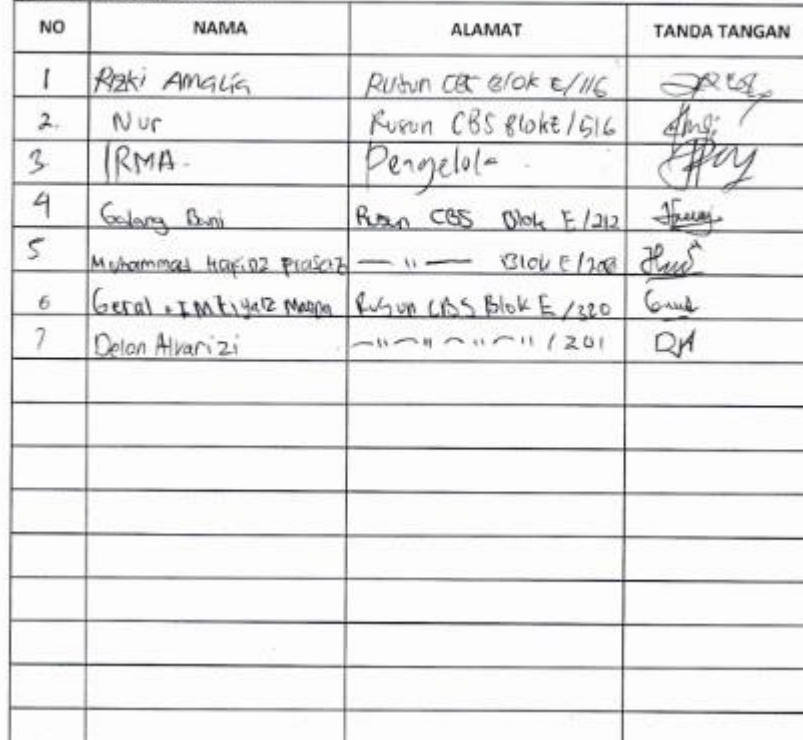 NO NAMA ALAMAT TANDA TANGAN
1 Rizki Amalia Rusun CBS Blok E/116
2. Nur Rusun CBS Blok E/516
3. IRMA. Pengelola.
4 Galang Bani Rusun CBS Blok E/212
5 Muhammad Hafidz — " — Blok E/208
6 Geral . IMtiyalz Rusun CBS Blok E/320
7 Delon Alvarizi —"—"—"—" / 201 DA